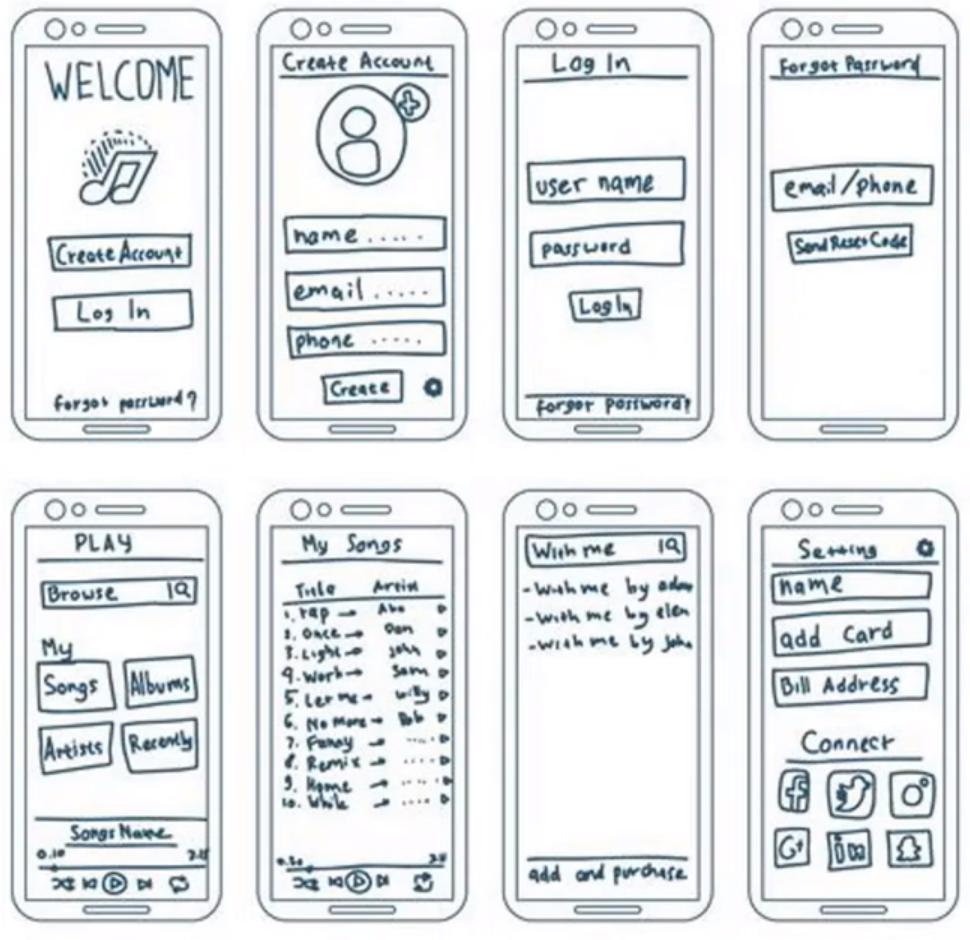 WELCOME
Create Account
Log In
forgot password?
Create Account
name .....
email .....
phone .....
Create
Log In
user name
password
Log In
forgot password?
Forgot Password
email/phone
Send Reset Code
PLAY
Browse
My
Songs
Albums
Artists
Recently
Songs Name
0.10
My Songs
Title Artist
1. rap → Abo
2. Once → Dan
3. Light → John
4. Work → Sam
5. Let me → willy
6. No More → Bob
7. Funny → ....
8. Remix → ....
9. Home → ....
10. While → ....
With me
- With me by adam
- With me by elen
- With me by john
add and purchase
Setting
name
add Card
Bill Address
Connect
f
G+
in